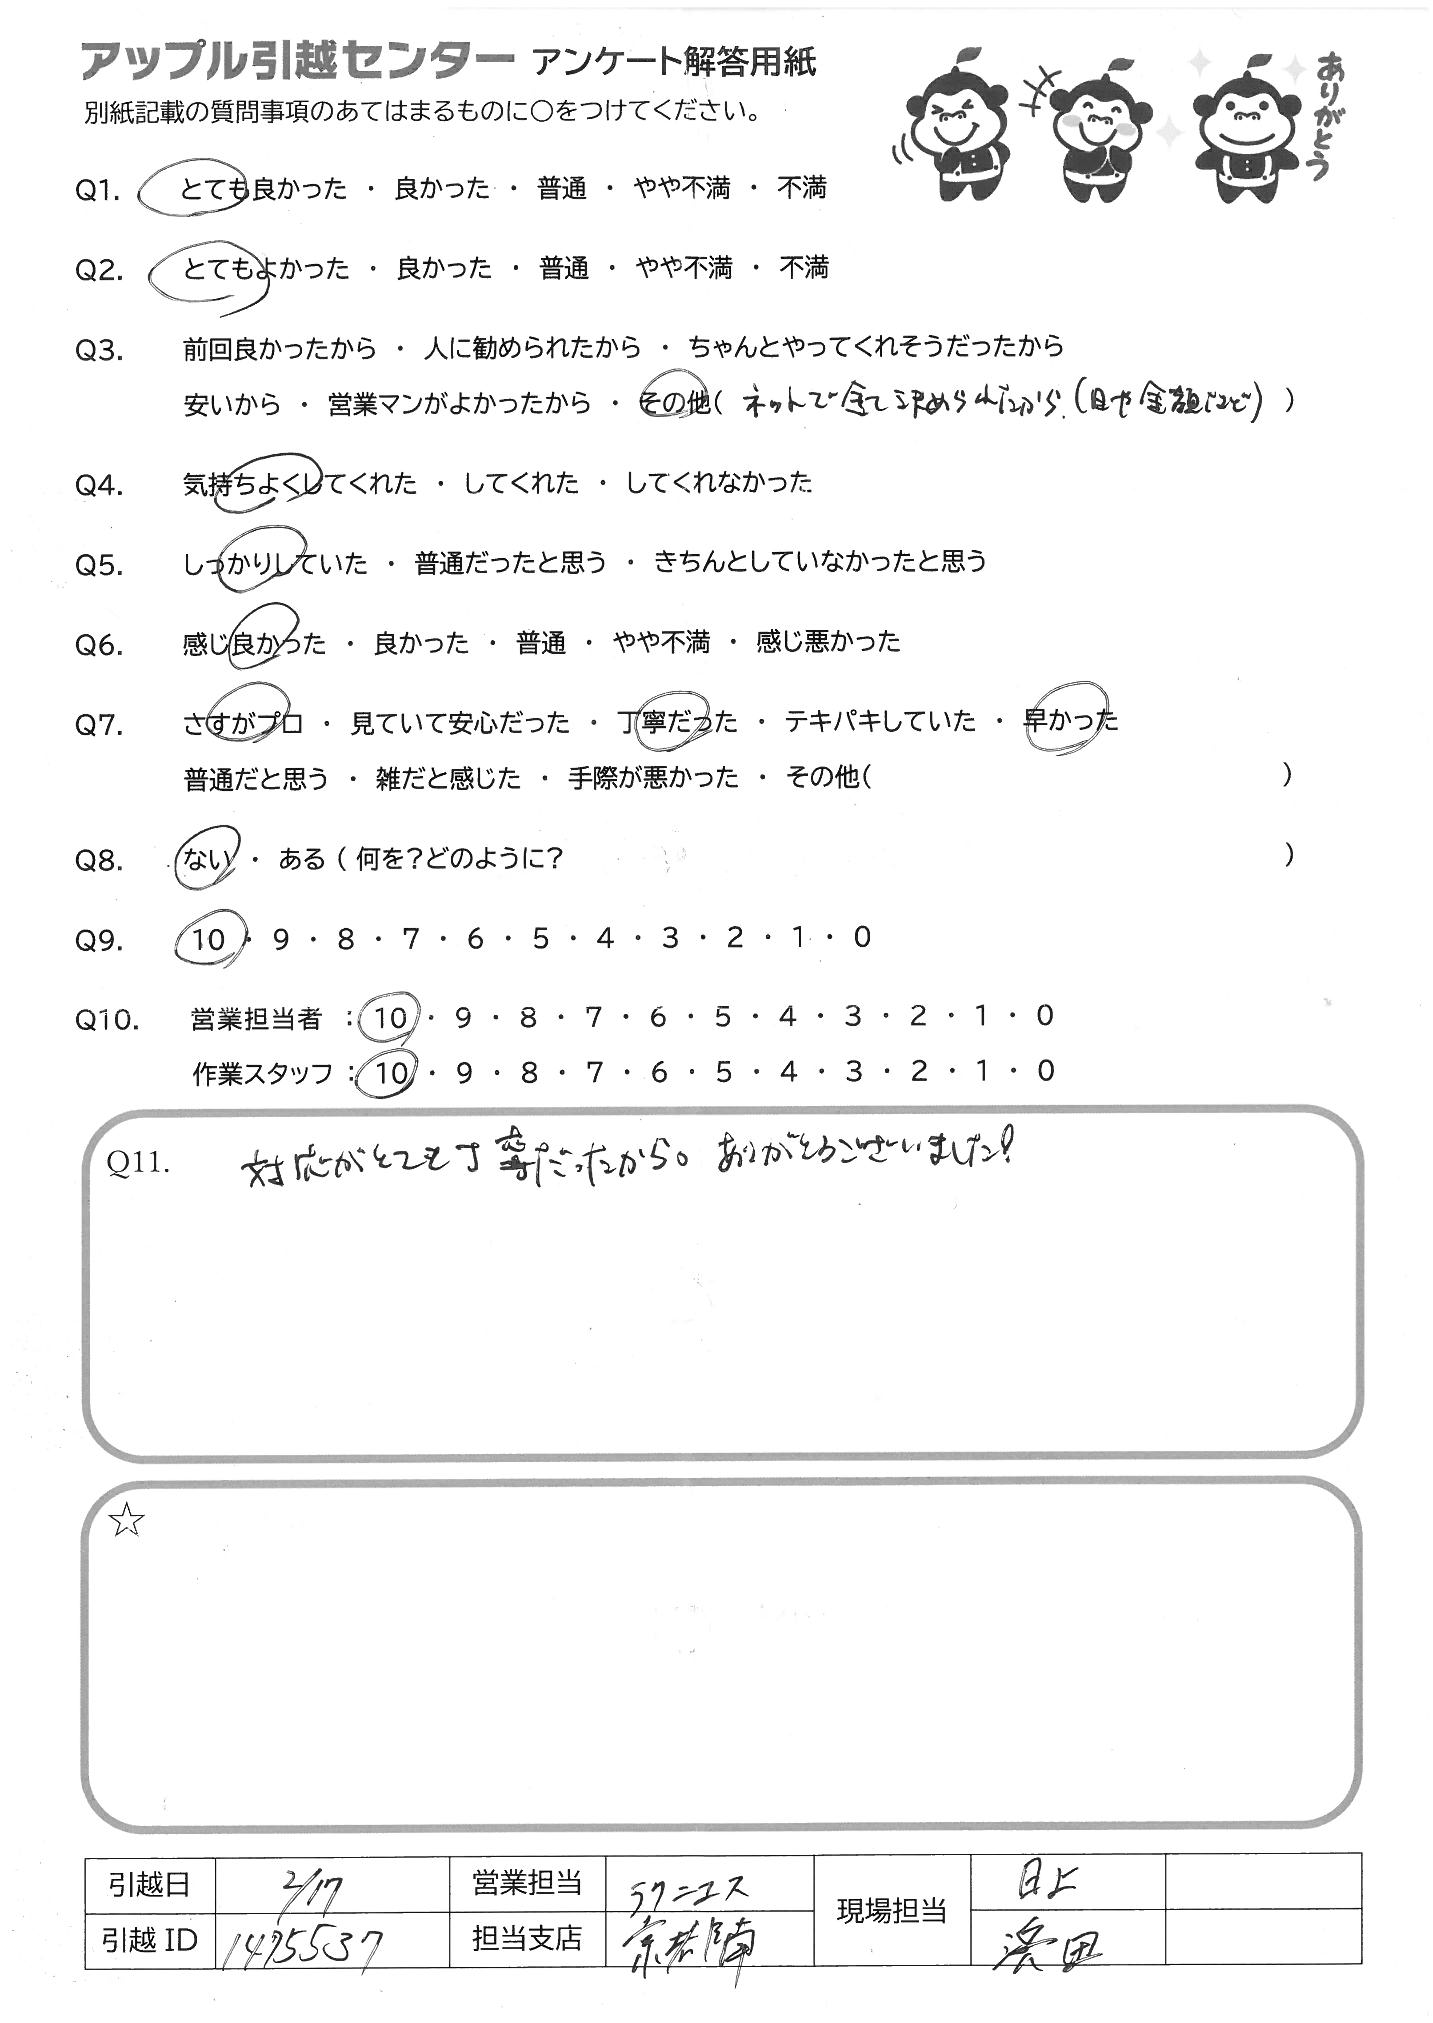 アップル引越センター アンケート解答用紙
ありがとう
別紙記載の質問事項のあてはまるものに〇をつけてください。
Q1. とても良かった ・ 良かった ・ 普通 ・ やや不満 ・ 不満
Q2. とてもよかった ・ 良かった ・ 普通 ・ やや不満 ・ 不満
Q3. 前回良かったから ・ 人に勧められたから ・ ちゃんとやってくれそうだったから
安いから ・ 営業マンがよかったから ・ その他( ネットで全て決められたから(日や金額など) )
Q4. 気持ちよくしてくれた ・ してくれた ・ してくれなかった
Q5. しっかりしていた ・ 普通だったと思う ・ きちんとしていなかったと思う
Q6. 感じ良かった ・ 良かった ・ 普通 ・ やや不満 ・ 感じ悪かった
Q7. さすがプロ ・ 見ていて安心だった ・ 丁寧だった ・ テキパキしていた ・ 早かった
普通だと思う ・ 雑だと感じた ・ 手際が悪かった ・ その他( )
Q8. ない ・ ある ( 何を?どのように? )
Q9. 10 ・ 9 ・ 8 ・ 7 ・ 6 ・ 5 ・ 4 ・ 3 ・ 2 ・ 1 ・ 0
Q10. 営業担当者 : 10 ・ 9 ・ 8 ・ 7 ・ 6 ・ 5 ・ 4 ・ 3 ・ 2 ・ 1 ・ 0
作業スタッフ : 10 ・ 9 ・ 8 ・ 7 ・ 6 ・ 5 ・ 4 ・ 3 ・ 2 ・ 1 ・ 0
Q11. 対応がとても丁寧だったから。ありがとうございました!
☆
引越日 2/17 営業担当 ラクニコス 現場担当 日上
引越ID 1475537 担当支店 京都南 濱田